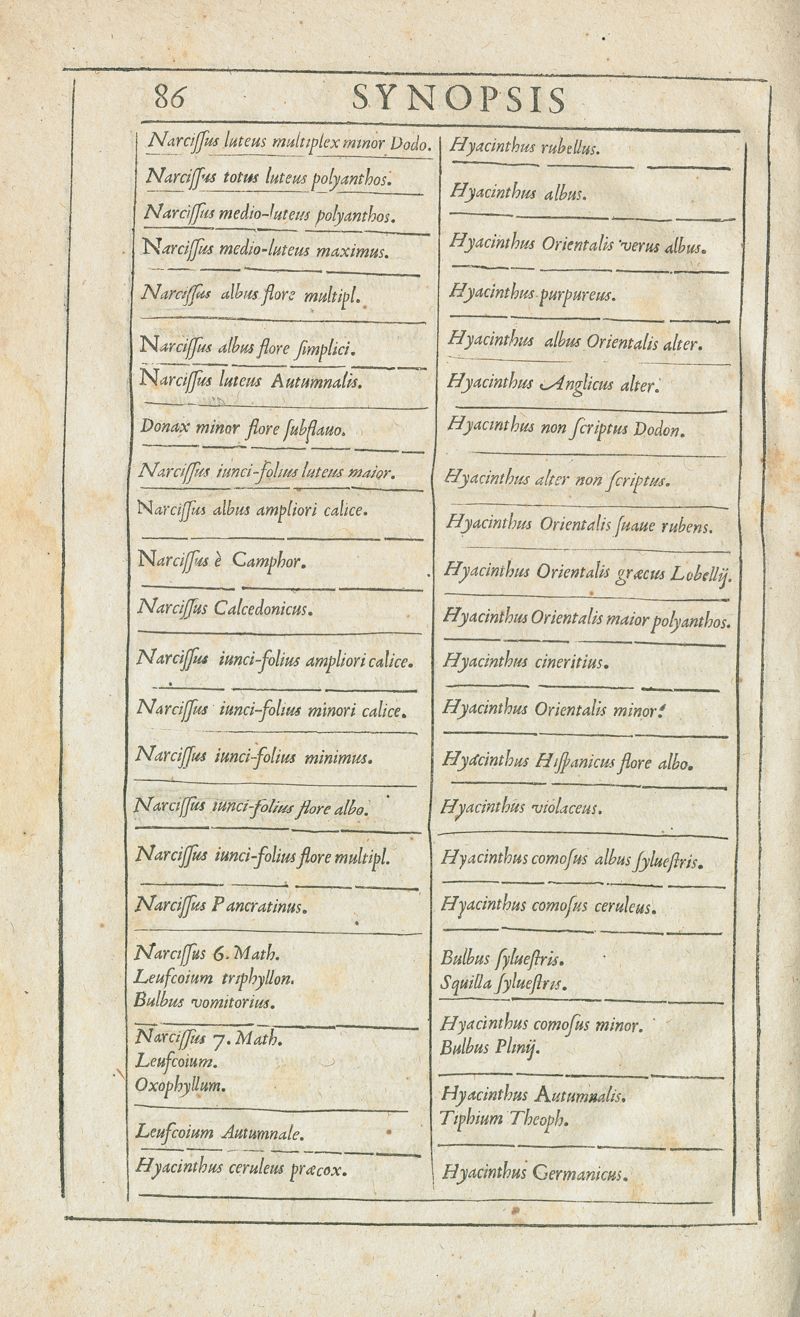 86
SYNOPSIS
Narciſſus luteus multiplex minor Dodo.
Narciſſus totus luteus polyanthos.
Narciſſus medio-luteus polyanthos.
Narciſſus medio-luteus maximus.
Narciſſus albus flore multipl.
Narciſſus albus flore ſimplici.
Narciſſus luteus Autumnalis.
Donax minor flore ſubflauo.
Narciſſus iunci-folius luteus maior.
Narciſſus albus ampliori calice.
Narciſſus è Camphor.
Narciſſus Calcedonicus.
Narciſſus iunci-folius ampliori calice.
Narciſſus iunci-folius minori calice.
Narciſſus iunci-folius minimus.
Narciſſus iunci-folius flore albo.
Narciſſus iunci-folius flore multipl.
Narciſſus Pancratinus.
Narciſſus 6. Math.
Leuſcoium triphyllon.
Bulbus vomitorius.
Narciſſus 7. Math.
Leuſcoium.
Oxophyllum.
Leuſcoium Autumnale.
Hyacinthus ceruleus præcox.
Hyacinthus rubellus.
Hyacinthus albus.
Hyacinthus Orientalis verus albus.
Hyacinthus purpureus.
Hyacinthus albus Orientalis alter.
Hyacinthus Anglicus alter.
Hyacinthus non ſcriptus Dodon.
Hyacinthus alter non ſcriptus.
Hyacinthus Orientalis ſuaue rubens.
Hyacinthus Orientalis græcus Lobellij.
Hyacinthus Orientalis maior polyanthos.
Hyacinthus cineritius.
Hyacinthus Orientalis minor.
Hyacinthus Hiſpanicus flore albo.
Hyacinthus violaceus.
Hyacinthus comoſus albus ſylueſtris.
Hyacinthus comoſus ceruleus.
Bulbus ſylueſtris.
Squilla ſylueſtris.
Hyacinthus comoſus minor.
Bulbus Plinij.
Hyacinthus Autumnalis.
Tiphium Theoph.
Hyacinthus Germanicus.